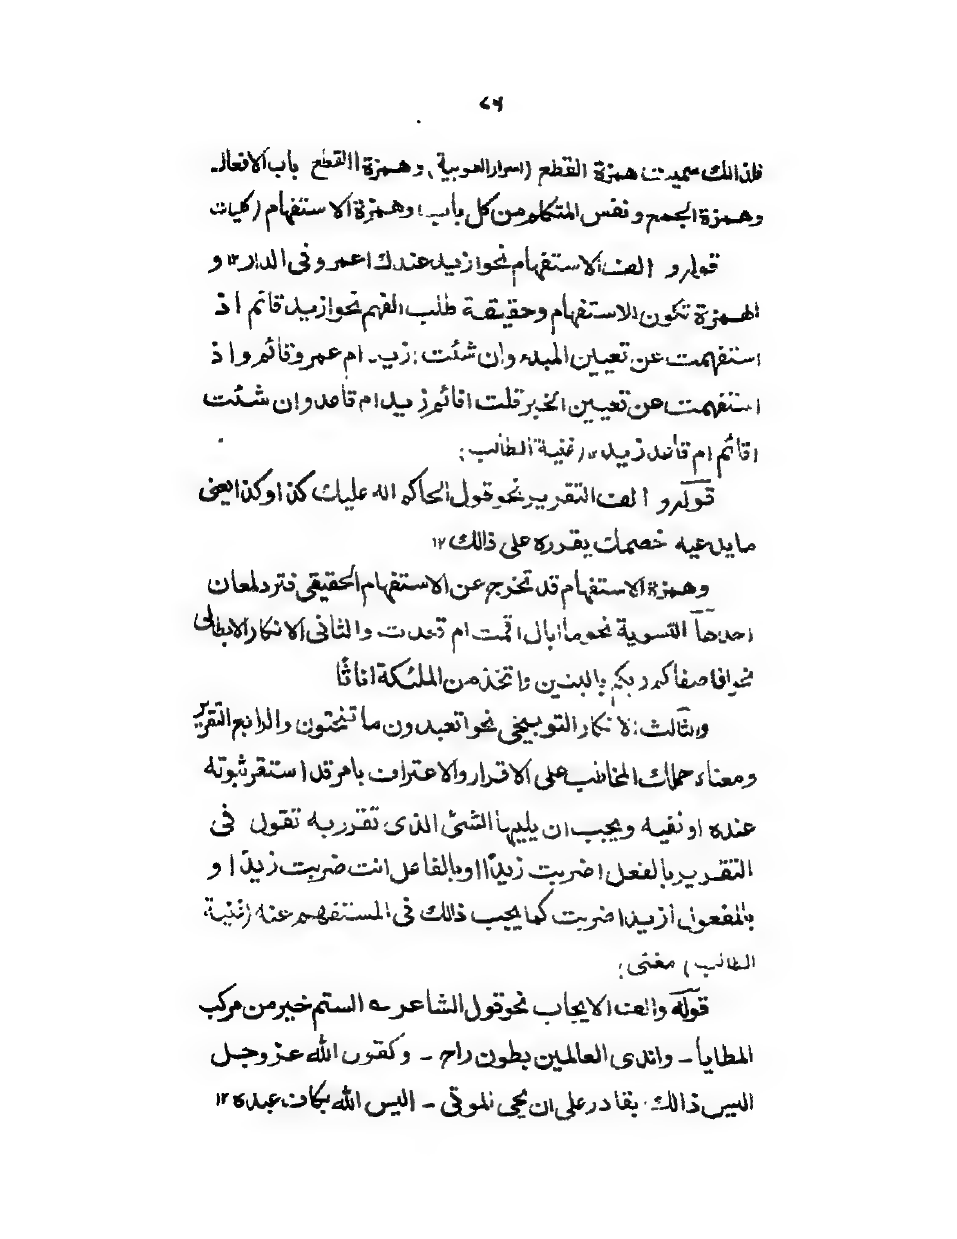 ۷۶
فلذالك سميت همزة القطع (اسرار العربية) وهمزة القطع باب الافعال
وهمزة الجمع ونفس المتكلم من كل باب، وهمزة الاستفهام (كليات
قوله و الف الاستفهام نحو ازيد عندك ام عمرو فى الدار ۱۲ و
الهمزة تكون الاستفهام وحقيقة طلب الفهم نحو ازيد قائم اذ
استفهمت عن تعيين المبتدء وان شئت ازيد ام عمرو قائم و اذ
استفهمت عن تعيين الخبر قلت اقائم زيد ام قاعد وان شئت
اقائم ام قاعد زيد ۱۲ (غنية الطالب)
قوله و الف التقرير نحو قول الحاكم الله عليك كذا وكذا يعنى
ما يدعيه خصمات يقرره على ذالك ۱۲
وهمزة الاستفهام قد تخرج عن الاستفهام الحقيقى فترد لمعان
احدها التسوية نحو ما ابالى اقمت ام قعدت والثانى الانكار الابطالى
نحو افاصفاكم ربكم بالبنين واتخذ من الملئكة اناثًا
والثالث الانكار التوبيخى نحو اتعبدون ما تنحتون والرابع التقرير
ومعناه حملك المخاطب على الاقرار والاعتراف بامر قد استقر ثبوته
عنده او نفيه ويجب ان يليها الشئ الذى تقرر به تقول فى
التقرير بالفعل اضربت زيدًا او بالفاعل انت ضربت زيدًا و
بالمفعول ازيدا ضربت كما يجب ذالك فى المستفهم عنه (غنية
الطالب) مغنى؛
قوله والف الايجاب نحو قول الشاعر ے الستم خير من مركب
المطايا ـ واندى العالمين بطون راح ـ وكقول الله عز وجل
اليس ذالك بقادر على ان يحى الموتى ـ اليس الله بكاف عبده ۱۲